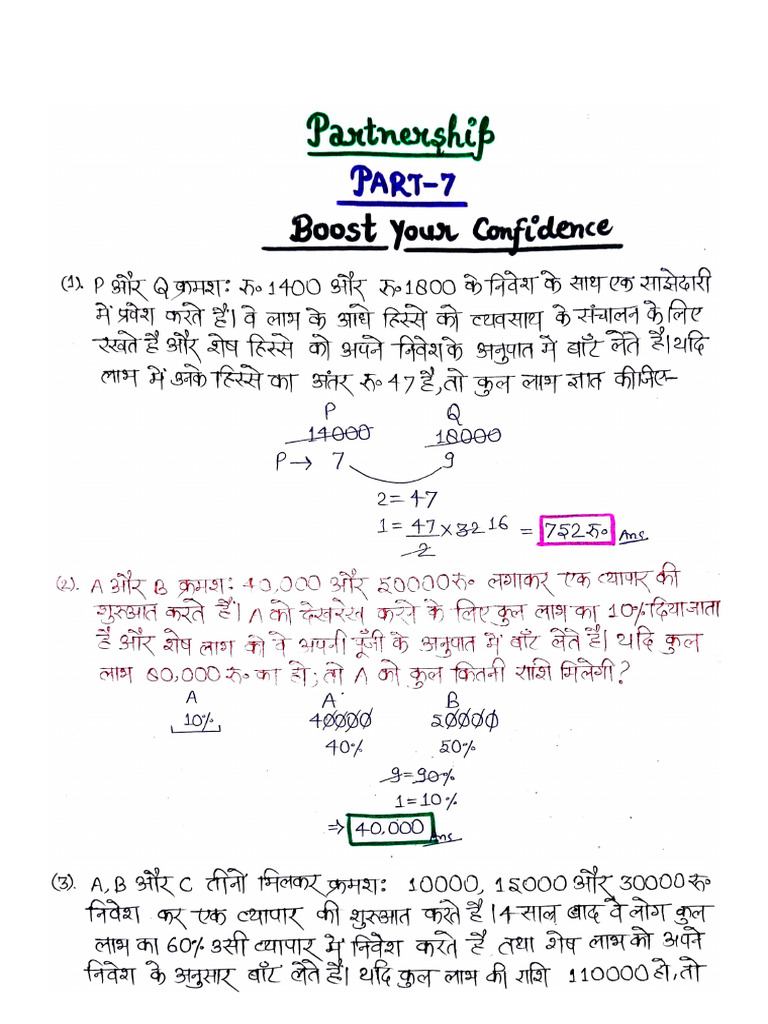 Partnership
PART-7
Boost Your Confidence
(1). P और Q क्रमश: रु० 1400 और रु० 1800 के निवेश के साथ एक साझेदारी
में प्रवेश करते है। वे लाभ के आधे हिस्से को व्यवसाय के संचालन के लिए
रखते है और शेष हिस्से को अपने निवेश के अनुपात में बाँट लेते है। यदि
लाभ में उनके हिस्से का अंतर रु० 47 है, तो कुल लाभ ज्ञात कीजिए-
P Q
14000 18000
P→ 7 9
2 = 47
1 = 47/2 × 32 16 = 752 रु० Ans
(2). A और B क्रमश: 40,000 और 50000 रु० लगाकर एक व्यापार की
शुरुआत करते हैं। A को देखरेख करने के लिए कुल लाभ का 10% दिया जाता
है और शेष लाभ को वे अपनी पूँजी के अनुपात में बाँट लेते है। यदि कुल
लाभ 80,000 रु० का हो; तो A को कुल कितनी राशि मिलेगी?
A A B
10% 40000 50000
40% 50%
9=90%
1=10%
⇒ 40,000 Ans
(3). A, B और C तीनों मिलकर क्रमश: 10000, 15000 और 30000 रु०
निवेश कर एक व्यापार की शुरुआत करते है। 4 साल बाद वे लोग कुल
लाभ का 60% उसी व्यापार में निवेश करते है तथा शेष लाभ को अपने
निवेश के अनुसार बाँट लेते है। यदि कुल लाभ की राशि 110000 हो, तो